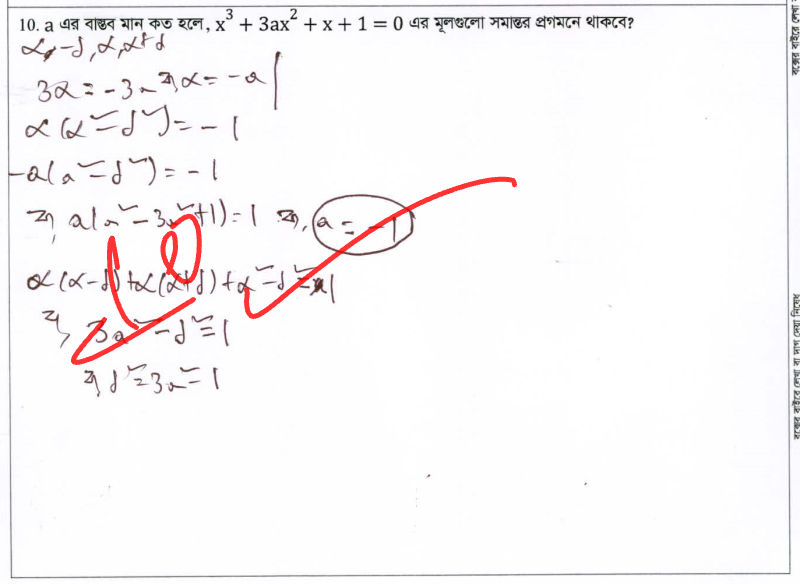 10. a এর বাস্তব মান কত হলে, x³ + 3ax² + x + 1 = 0 এর মূলগুলো সমান্তর প্রগমনে থাকবে?
α-d, α, α+d
3α = -3a ⇒ α = -a
α(α² - d²) = -1
-a(a² - d²) = -1
⇒ a(a² - 3a² + 1) = 1 ⇒, a = -1
α(α-d) + α(α+d) + α² - d² = 1
⇒, 3a² - d² = 1
⇒ d² = 3a² - 1
10
বক্সের বাইরে লেখা বা দাগ দেয়া নিষেধ